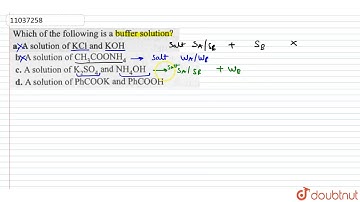 11037258
Which of the following is a buffer solution?
a. A solution of KCl and KOH salt SA/SB + SB x
b. A solution of CH₃COONH₄ → salt WA/WB
c. A solution of K₂SO₄ and NH₄OH → salt SA/SB + WB
d. A solution of PhCOOK and PhCOOH
doubtnut